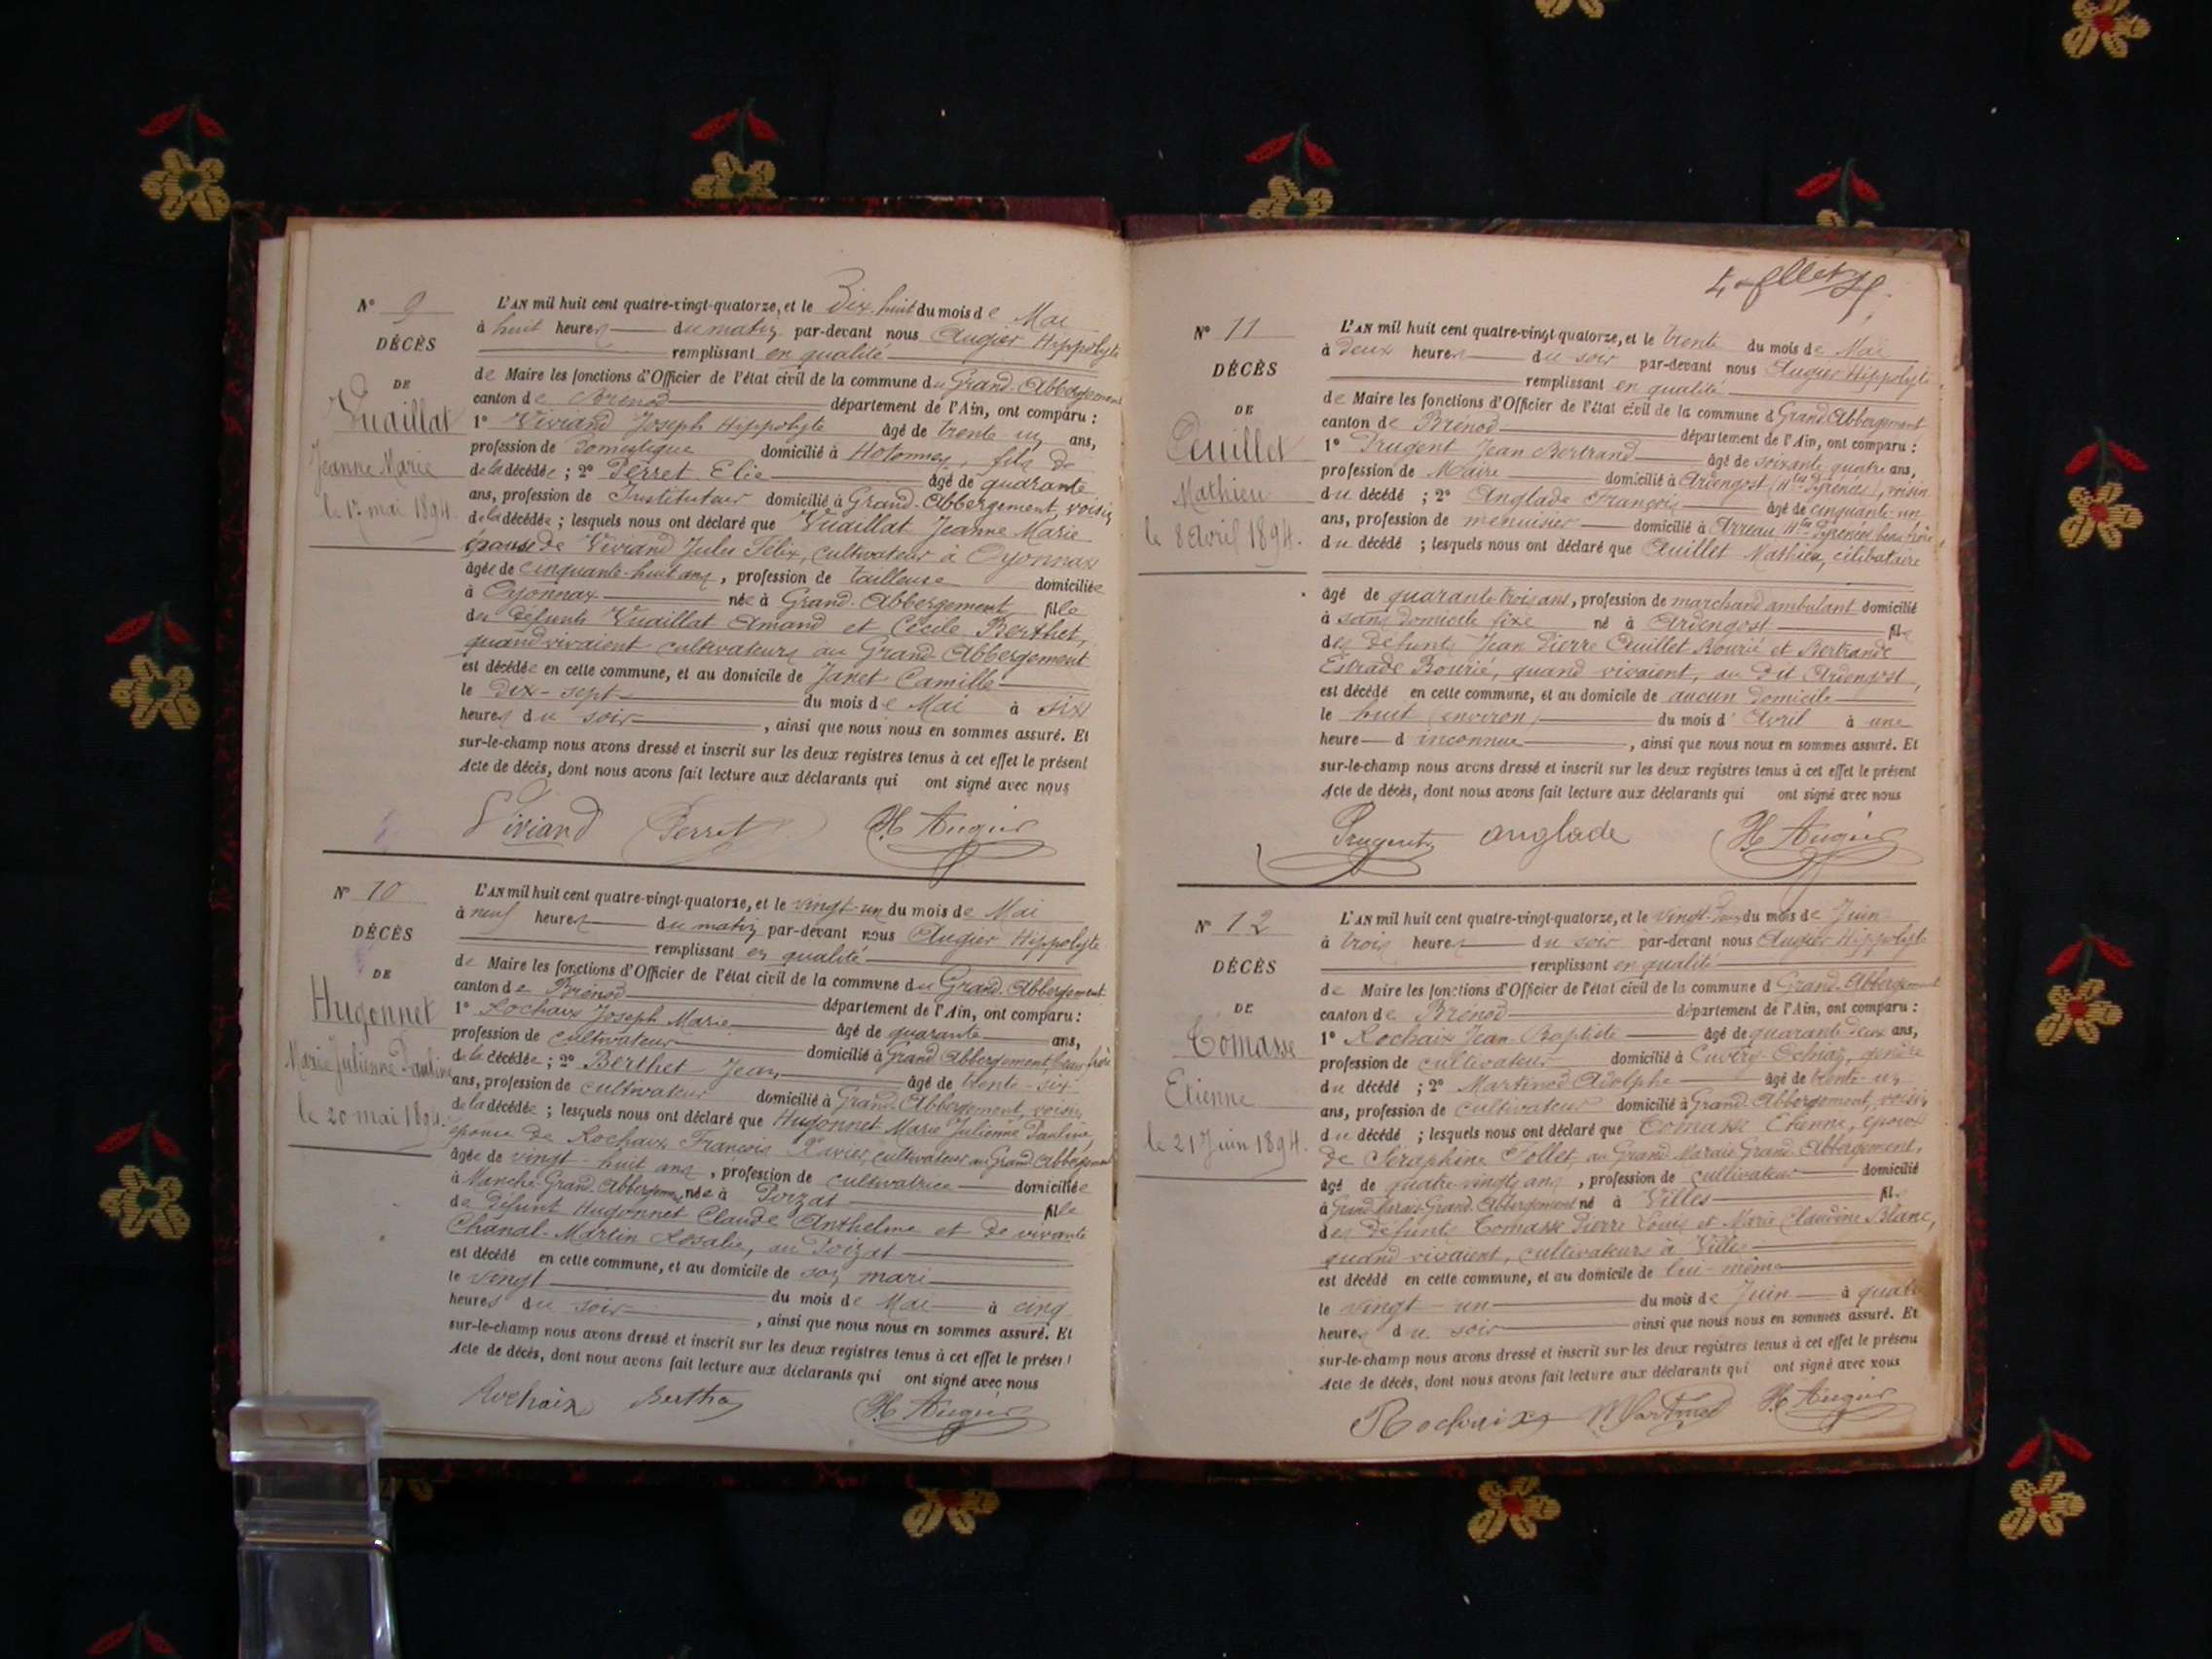 N° 9
DÉCÈS
DE
Vuaillat
Jeanne Marie
le 17 mai 1894.
L'AN mil huit cent quatre-vingt-quatorze, et le Dix-huit du mois de Mai
à huit heures du matin par-devant nous Augier Hippolyte
remplissant en qualité
de Maire les fonctions d'Officier de l'état civil de la commune du Grand-Abbergement
canton de Brénod département de l'Ain, ont comparu :
1° Viviand Joseph Hippolyte âgé de trente un ans,
profession de Domestique domicilié à Hotonnes, fils de
de la décédée ; 2° Perret Elie âgé de quarante
ans, profession de Instituteur domicilié à Grand-Abbergement, voisin
de la décédée ; lesquels nous ont déclaré que Vuaillat Jeanne Marie
épouse de Viviand Jules Félix, cultivateur à Oyonnax
âgée de cinquante-huit ans, profession de tailleuse domiciliée
à Oyonnax née à Grand-Abbergement fille
des défunts Vuaillat Amand et Cécile Berthet,
quand vivaient cultivateurs au Grand-Abbergement
est décédée en cette commune, et au domicile de Janet Camille
le dix-sept du mois de Mai à six
heures du soir, ainsi que nous nous en sommes assuré. Et
sur-le-champ nous avons dressé et inscrit sur les deux registres tenus à cet effet le présent
Acte de décès, dont nous avons fait lecture aux déclarants qui ont signé avec nous
Viviand Perret H Augier
N° 10
DÉCÈS
DE
Hugonnet
Marie Julienne Pauline
le 20 mai 1894.
L'AN mil huit cent quatre-vingt-quatorze, et le vingt-un du mois de Mai
à neuf heures du matin par-devant nous Augier Hippolyte
remplissant en qualité
de Maire les fonctions d'Officier de l'état civil de la commune du Grand-Abbergement
canton de Brénod département de l'Ain, ont comparu :
1° Rochaix Joseph Marie âgé de quarante ans,
profession de cultivateur domicilié à Grand Abbergement, beau frère
de la décédée ; 2° Berthet Jean âgé de trente-six
ans, profession de cultivateur domicilié à Grand-Abbergement, voisin
de la décédée ; lesquels nous ont déclaré que Hugonnet Marie Julienne Pauline,
épouse de Rochaix François Xavier, cultivateur au Grand Abbergement
âgée de vingt-huit ans, profession de cultivatrice domiciliée
à Manche-Grand-Abbergement, née à Poizat fille
de défunt Hugonnet Claude Anthelme et de vivante
Chanal-Martin Rosalie, au Poizat
est décédé en cette commune, et au domicile de son mari
le vingt du mois de Mai à cinq
heures du soir, ainsi que nous nous en sommes assuré. Et
sur-le-champ nous avons dressé et inscrit sur les deux registres tenus à cet effet le présent
Acte de décès, dont nous avons fait lecture aux déclarants qui ont signé avec nous
Rochaix Berthet H Augier
N° 11
DÉCÈS
DE
Quillet
Mathieu
le 8 Avril 1894.
L'AN mil huit cent quatre-vingt-quatorze, et le trente du mois de Mai
à deux heures du soir par-devant nous Augier Hippolyte
remplissant en qualité
de Maire les fonctions d'Officier de l'état civil de la commune d Grand Abbergement
canton de Brénod département de l'Ain, ont comparu :
1° Prugent Jean Bertrand âgé de soixante quatre ans,
profession de Maire domicilié à Ardengost (Htes Pyrénées), voisin
du décédé ; 2° Anglade François âgé de cinquante-un
ans, profession de menuisier domicilié à Arreau Htes Pyrénées beau frère
du décédé ; lesquels nous ont déclaré que Quillet Mathieu, célibataire
âgé de quarante-trois ans, profession de marchand ambulant domicilié
à sans domicile fixe né à Ardengost fils
des défunts Jean Pierre Quillet Bourié et Bertrande
Estrade Bourié, quand vivaient, au dit Ardengost,
est décédé en cette commune, et au domicile de aucun domicile
le huit (environ) du mois d'Avril à une
heure d inconnue, ainsi que nous nous en sommes assuré. Et
sur-le-champ nous avons dressé et inscrit sur les deux registres tenus à cet effet le présent
Acte de décès, dont nous avons fait lecture aux déclarants qui ont signé avec nous
Prugent anglade H Augier
N° 12
DÉCÈS
DE
Tomasse
Etienne
le 21 Juin 1894.
L'AN mil huit cent quatre-vingt-quatorze, et le vingt-deux du mois de Juin
à trois heures du soir par-devant nous Augier Hippolyte
remplissant en qualité
de Maire les fonctions d'Officier de l'état civil de la commune d Grand-Abbergement
canton de Brénod département de l'Ain, ont comparu :
1° Rochaix Jean-Baptiste âgé de quarante-deux ans,
profession de cultivateur domicilié à gendre
du décédé ; 2° Martinod Adolphe âgé de trente-un
ans, profession de cultivateur domicilié à Grand-Abbergement, voisin
du décédé ; lesquels nous ont déclaré que Tomasse Etienne, époux
de Séraphine Tollet, au Grand Marais Grand-Abbergement,
âgé de quatre-vingts ans, profession de cultivateur domicilié
à Grand Marais-Grand-Abbergement né à Villes fils
des défunts Tomasse Pierre Louis et Marie Claudine Blanc,
quand vivaient, cultivateurs à Villes
est décédé en cette commune, et au domicile de lui-même
le vingt-un du mois de Juin à quatre
heures du soir ainsi que nous nous en sommes assuré. Et
sur-le-champ nous avons dressé et inscrit sur les deux registres tenus à cet effet le présent
Acte de décès, dont nous avons fait lecture aux déclarants qui ont signé avec nous
Rochaix Martinod H Augier